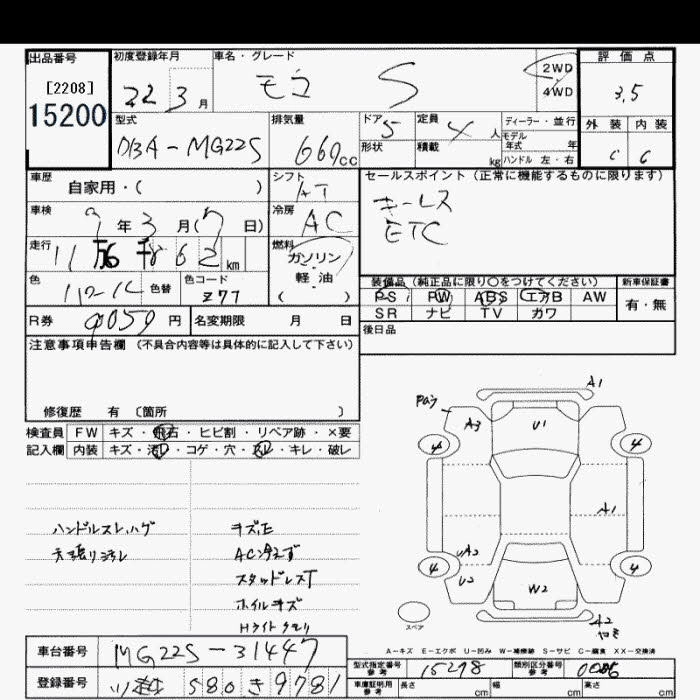 出品番号
[2208]
15200
初度登録年月
22 3月
車名・グレード
モコ S
2WD
4WD
評価点
3.5
外装 内装
C C
型式
DBA-MG22S
排気量
660cc
ドア 5
形状
定員 4人
積載 kg
ディーラー・並行
モデル
年式 年
ハンドル 左・右
車歴
自家用・( )
シフト
AT
車検
9年3月(7日)
冷房
AC
走行
11万6千862km
燃料
ガソリン・
軽油・
( )
色
色替
色コード
Z77
R券
9050円
名変期限 月 日
セールスポイント (正常に機能するものに限ります)
キーレス
ETC
装備品 (純正品に限り○をつけてください)
PS PW ABS エアB AW
SR ナビ TV カワ
新車保証書
有・無
後日品
注意事項申告欄 (不具合内容等は具体的に記入して下さい)
修復歴 有 〔箇所 〕
検査員
記入欄
FW キズ・飛石・ヒビ割・リペア跡・×要
内装 キズ・汚レ・コゲ・穴・スレ・キレ・破レ
ハンドルスレ、ハゲ
天張り汚レ
キズ正
AC冷えず
スタッドレスT
ホイルキズ
Hライトクモリ
A1
A3
U1
4
4
A1
UA2
U2
4
4
W2
A2
スペア
A-キズ E-エクボ U-凹み W-補修跡 S-サビ C-腐食 XX-交換済
車台番号
MG22S-31447
登録番号
580 き 9781
型式指定番号
参考
15278
類別区分番号
参考
0006
車庫証明用
参考
長さ cm
幅 cm
高さ cm